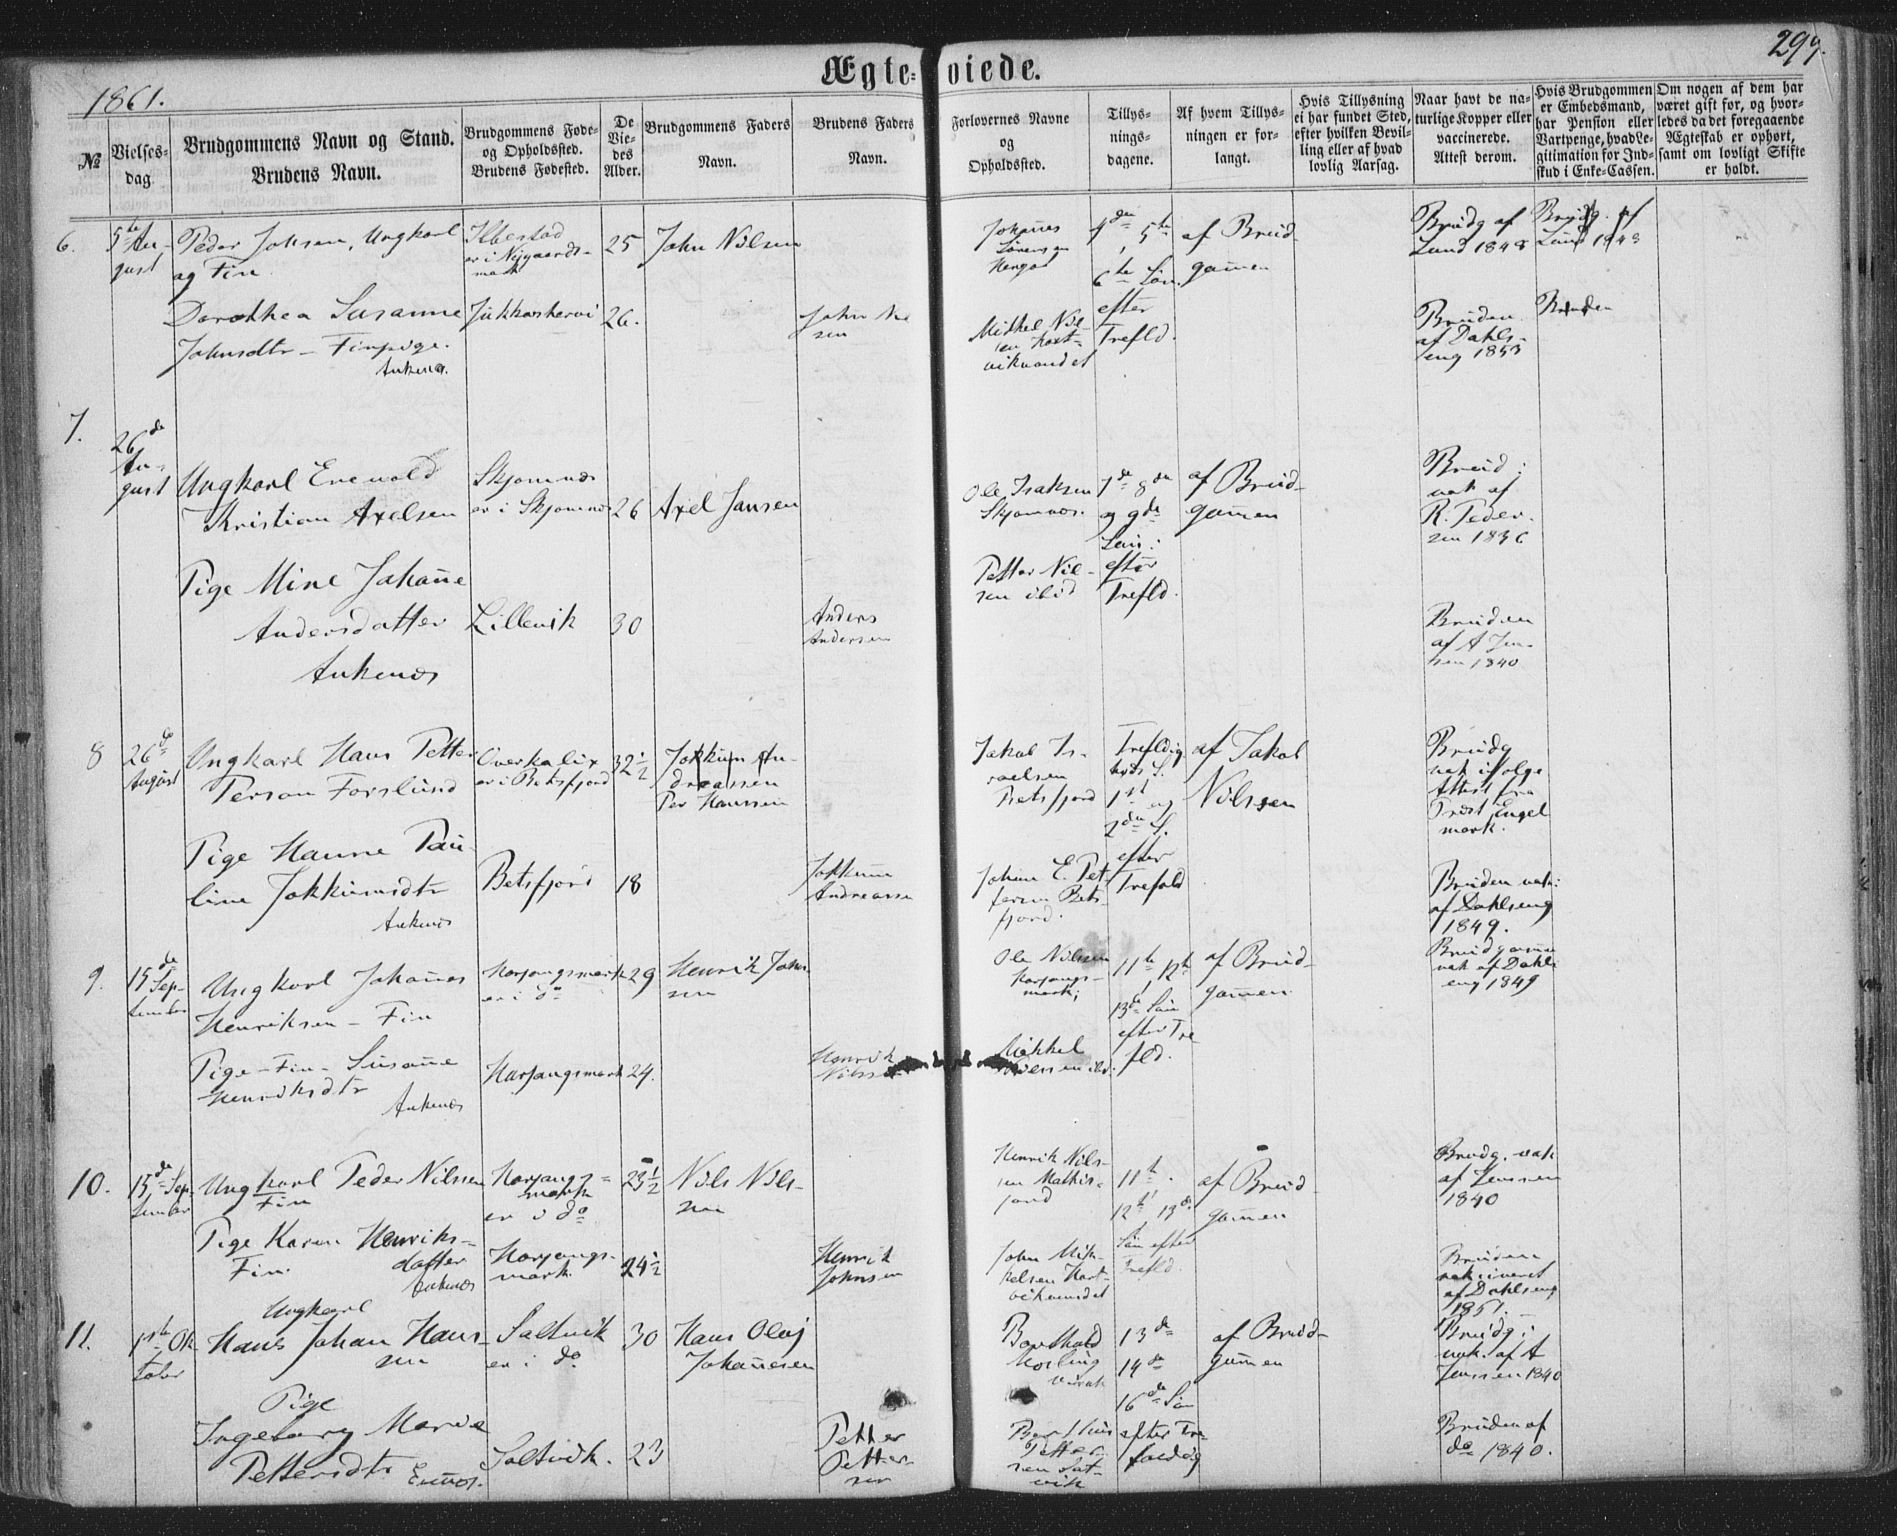 299.
Ægte-viede.
1861.
№
Vielses-
dag.
Brudgommens Navn og Stand.
Brudens Navn.
Brudgommens Føde-
og Opholdssted.
Brudens Fødested.
De
Vie-
des
Alder.
Brudgommens Faders
Navn.
Brudens Faders
Navn.
Forlovernes Navne
og
Opholdssted.
Tillys-
nings-
dagene.
Af hvem Tillys-
ningen er for-
langt.
Hvis Tillysning
ei har fundet Sted,
efter hvilken Bevil-
ling eller af hvad
lovlig Aarsag.
Naar havt de na-
turlige Kopper eller
vaccinerede.
Attest derom.
Hvis Brudgommen
er Embedsmand,
har Pension eller
Vartpenge, hvad Le-
gitimation for Ind-
skud i Enke-Cassen.
Om nogen af dem har
været gift før, og hvor-
ledes da det foregaaende
Ægteskab er ophørt,
samt om lovligt Skifte
er holdt.
6.
5te Au-
gust
Peder Johsen, Ungkarl
og Fin.
Ibestad
er i Nygaards-
mark
25
John Nilsen
Johañes
Sörensen
4de, 5te
6te Sön.
af Brud
gom̃en
Brudg af
Lund 1848
Brudg. af
Lund 1848
Dorothea Susanne
Johnsdtr - Finpige.
Ankenæs.
Jukkaskervi
26.
John Nil
sen
Mikkel Nil-
sen Hart-
vikvandet
efter
Trefld.
Bruden
af Dahls-
eng 1853
Bruden
7.
26de
Au-
gust
Ungkarl Enevold
Kristian Axelsen
Skjomnæs
er i Skjomnæs
26
Axel Jansen
Ole Isaksen
Skjomnæs.
7de 8de
og 9de
Sön:
af Brud-
gom̃en
Brud:
vak af
R. Peder-
sen 1836
Pige Mine Johañe
Andersdatter
Ankenæs
Lillevik
30
Anders
Andersen
Petter Nil-
sen ibid
efter
Trefld.
Bruden
af A Jen-
sen 1840
8
26de
August
Ungkarl Hans Petter
Person Forslund
Overkalix
er i Betsfjord
32½
Jokkum An-
dreassen
Per Hanssen
Jakob Is-
raelsen
Betsfjord
Trefldig
heds S.
1st og
2den S.
af Jakob
Nilssen
Brudg
vak ifølge
Attest fra
Prost Engel
mark.
Pige Hanne Pau-
line Jokkumsdtr
Ankenæs
Betsfjord
18
Jokkum
Andreassen
Johan E. Pet-
tersen Bets-
fjord.
efter
Trefold
Bruden vak:
af Dahlseng
1849.
9.
15de
Sep-
tember
Ungkarl Johañes
Henriksen - Fin
Harjangsmark
er i do
29
Henrik John
sen
Ole Nilssen
Harjangs-
mark;
11te, 12te
13de Sön
af Brud-
gom̃en.
Brudgom̃en
vak af Dahls
eng 1849
Pige - Fin - Susañe
Henriksdtr
Ankenæs
Harjangsmark
24.
Henrik
Nilssen
Mikkel
efter Tre
fld.
10.
15de Sep-
tember
Ungkarl Peder Nilssen
Fin
Harjangs-
mark
er i do
23½
Nils Nils-
sen
Henrik Nils-
sen Mathis-
jord
11te
12te 13de
af Brud-
gom̃en
Brudg. vak
af Jenssen
1840
Pige Karen Henriks-
datter
Fin.
Ankenæs
Harjangs-
mark.
24½
Henrik
Johnsen
John Mik-
kelsen Hart-
vikvandet
Sön efter
Trefld.
Bruden
vakcineret
af Dahlseng
1851.
11.
1ste Ok
tober
Ungkarl
Hans Johan Han-
sen
Saltvik
er i do
30
Hans Olaj
Johañesen
13de
14de
16de Sön
af Brud-
gom̃en
Brudg:
vak. af A
Jenssen 1840
Pige
Ingeborg Maria
Pettersdtr
Saltvik.
23
Petter
Petter-
sen
Petter
sen Salt-
vik
efter Tre-
foldig
Bruden af
do 1840.